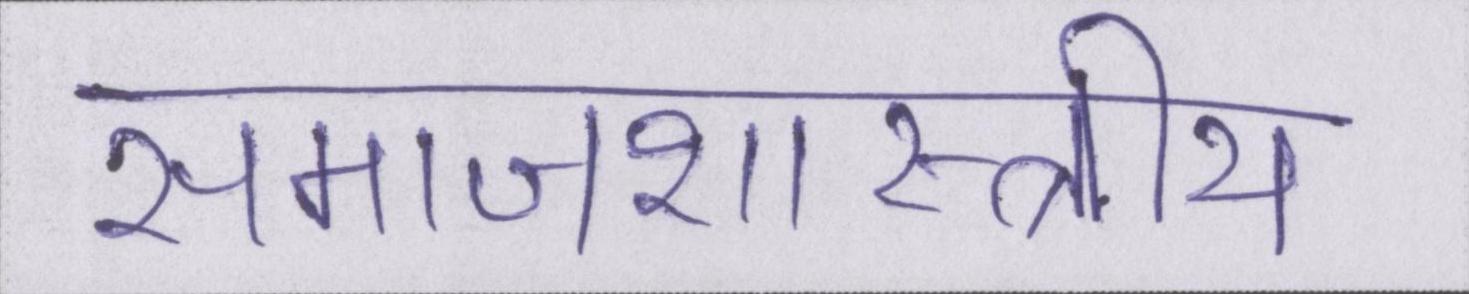 समाजशास्त्रीय